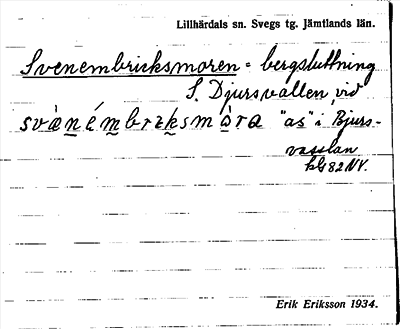 Lillhärdals sn. Svegs tg. Jämtlands län.
Svenembricksmoren = bergsluttning
S. Djursvallen, vid
"as" i Bjurs-
vasslan
Erik Eriksson 1934.